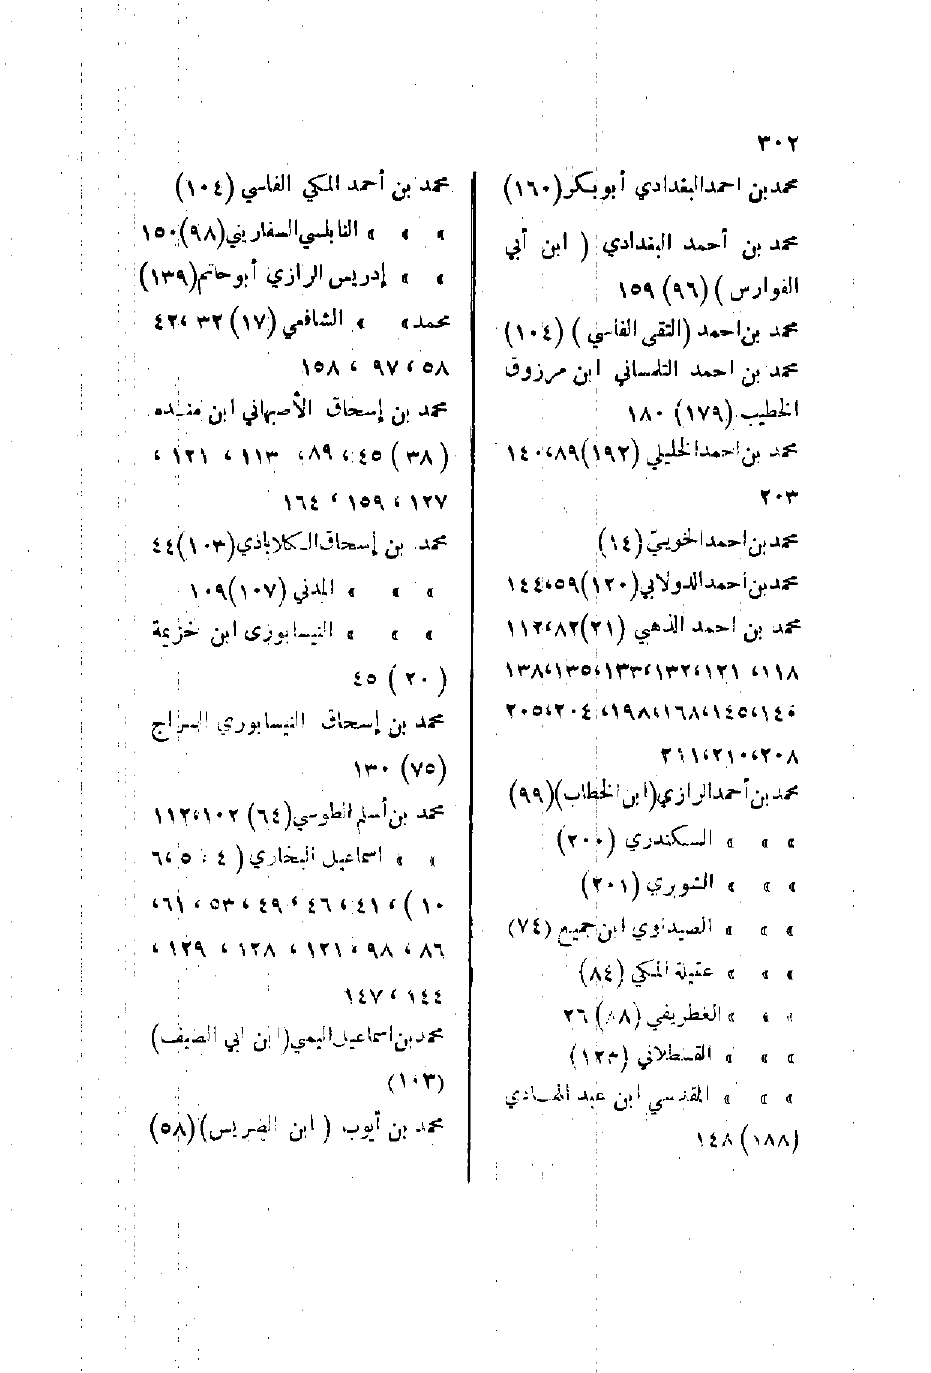 ٣٠٢
محمد بن احمد البغدادي أبو بكر (١٦٠)
محمد بن أحمد البغدادي ( ابن أبي
الفوارس ) (٩٦) ١٥٩
محمد بن احمد (التقى الفاسي ) (١٠٤)
محمد بن احمد التلمساني ابن مرزوق
الخطيب (١٧٩) ١٨٠
محمد بن احمد الخليلي (١٩٢) ٨٩، ١٤٠
٢٠٣
محمد بن احمد الخويي (١٤)
محمد بن أحمد الدولابي (١٢٠) ٥٩، ١٤٤
محمد بن احمد الذهبي (٢١) ٨٢، ١١٢
١١٨، ١٢١، ١٣٢، ١٣٣، ١٣٥، ١٣٨
١٤٠، ١٤٥، ١٦٨، ١٩٨، ٢٠٤، ٢٠٥
٢٠٨، ٢١٠، ٢١١
محمد بن أحمد الرازي (ابن الخطاب) (٩٩)
» » » السكندري (٢٠٠)
» » » الشوبري (٢٠١)
» » » الصيداوي ابن جميع (٧٤)
» » » عقيلة المكي (٨٤)
» » » الغطريفي (٨٨) ٢٦
» » » القسطلاني (١٢٣)
» » » المقدسي ابن عبد الهادي
(١٨٨) ١٤٨
محمد بن أحمد المكي الفاسي (١٠٤)
» » » النابلسي السفاريني (٩٨) ١٥٠
» » إدريس الرازي أبو حاتم (١٣٩)
محمد » » الشافعي (١٧) ٣٢، ٤٢
٥٨، ٩٧، ١٥٨
محمد بن إسحاق الأصبهاني ابن منده
(٣٨) ٤٥، ٨٩، ١١٣، ١٢١،
١٢٧، ١٥٩، ١٦٤
محمد بن إسحاق الكلاباذي (١٠٣) ٤٤
» » » المدني (١٠٧) ١٠٩
» » » النيسابوزى ابن خزيمة
(٢٠) ٤٥
محمد بن إسحاق النيسابوري السراج
(٧٥) ١٣٠
محمد بن أسلم الطوسي (٦٤) ١٠٢، ١١٢
» » اسماعيل البخاري ( ٤ ، ٥، ٦
١٠ )، ٤١، ٤٦، ٤٩، ٥٣، ٦١،
٨٦، ٩٨، ١٢١، ١٢٨، ١٢٩،
١٤٤، ١٤٧
محمد بن اسماعيل اليمي (ابن ابي الصيف)
(١٠٣)
محمد بن أيوب ( ابن الضريس) (٥٨)